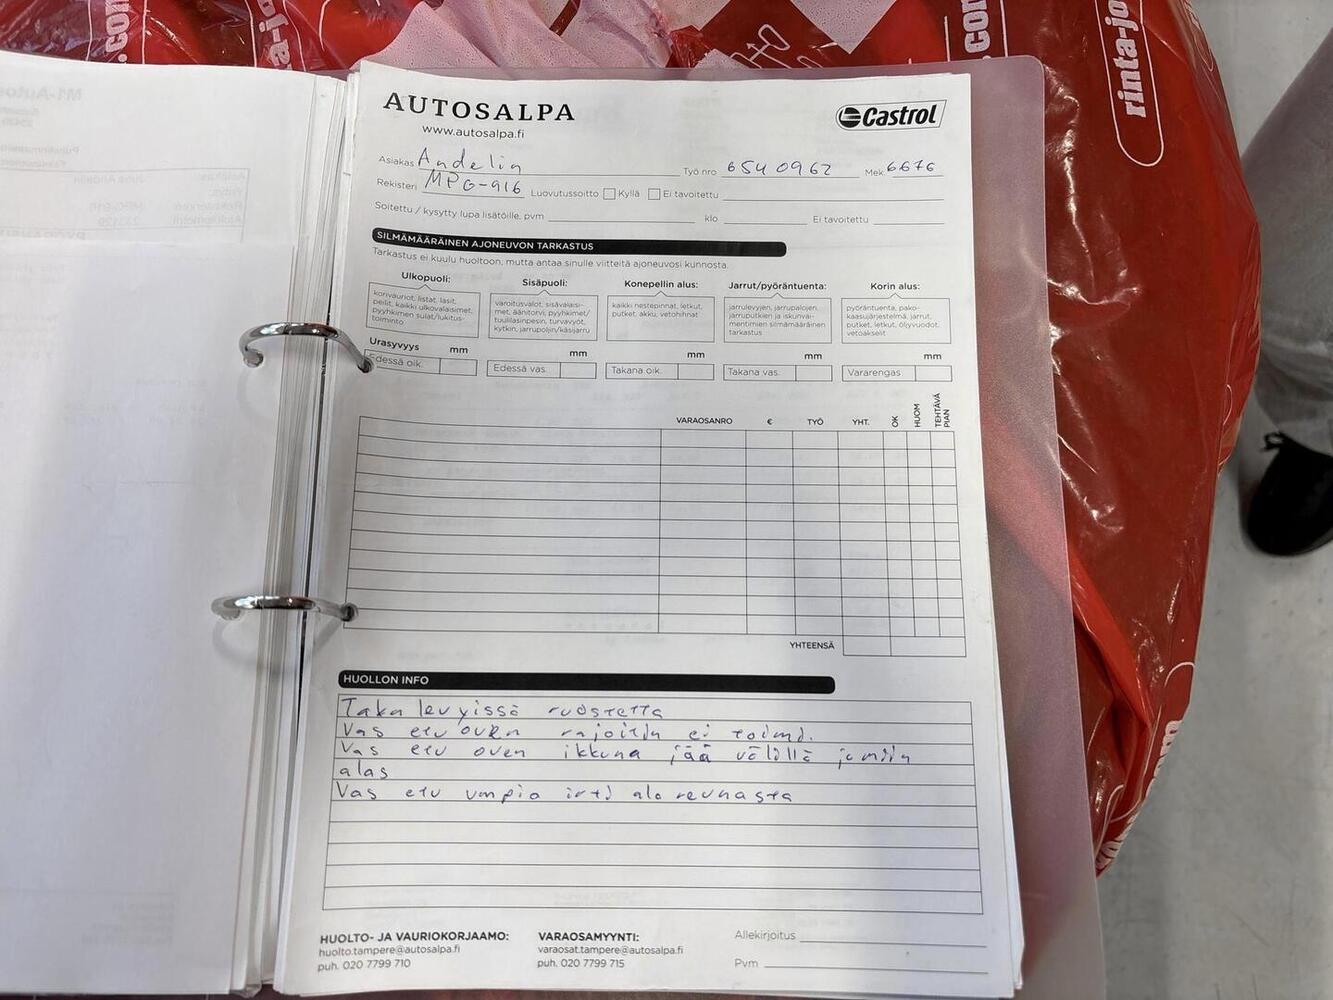 AUTOSALPA
www.autosalpa.fi
Castrol
Asiakas Andelin
Työ nro 6540962
Mek. 6676
Rekisteri MPG-916
Luovutussoitto Kyllä Ei tavoitettu
Soitettu / kysytty lupa lisätöille, pvm klo Ei tavoitettu
SILMÄMÄÄRÄINEN AJONEUVON TARKASTUS
Tarkastus ei kuulu huoltoon, mutta antaa sinulle viitteitä ajoneuvosi kunnosta.
Ulkopuoli:
korivauriot, listat, lasit,
peilit, kaikki ulkovalaisimet,
pyyhkimen sulat/lukitus-
toiminto
Sisäpuoli:
varoitusvalot, sisävalaisi-
met, äänitorvi, pyyhkimet/
tuulilasinpesin, turvavyöt,
kytkin, jarrupoljin/käsijarru
Konepellin alus:
kaikki nestepinnat, letkut,
putket, akku, vetohihnat
Jarrut/pyöräntuenta:
jarrulevyjen, jarrupalojen,
jarruputkien ja iskunvai-
mentimien silmämääräinen
tarkastus
Korin alus:
pyöräntuenta, pako-
kaasujärjestelmä, jarrut,
putket, letkut, öljyvuodot,
vetoakselit
Urasyvyys mm mm mm mm mm
Edessä oik. Edessä vas. Takana oik. Takana vas. Vararengas
VARAOSANRO € TYÖ YHT. OK HUOM TEHTÄVÄ PIAN
YHTEENSÄ
HUOLLON INFO
Taka levyissä ruostetta
Vas etu oven rajoitin ei toimi.
Vas etu oven ikkuna jää välillä jumiin
alas
Vas etu umpio irti alareunasta
HUOLTO- JA VAURIOKORJAAMO:
huolto.tampere@autosalpa.fi
puh. 020 7799 710
VARAOSAMYYNTI:
varaosat.tampere@autosalpa.fi
puh. 020 7799 715
Allekirjoitus
Pvm
rinta-jo
.com